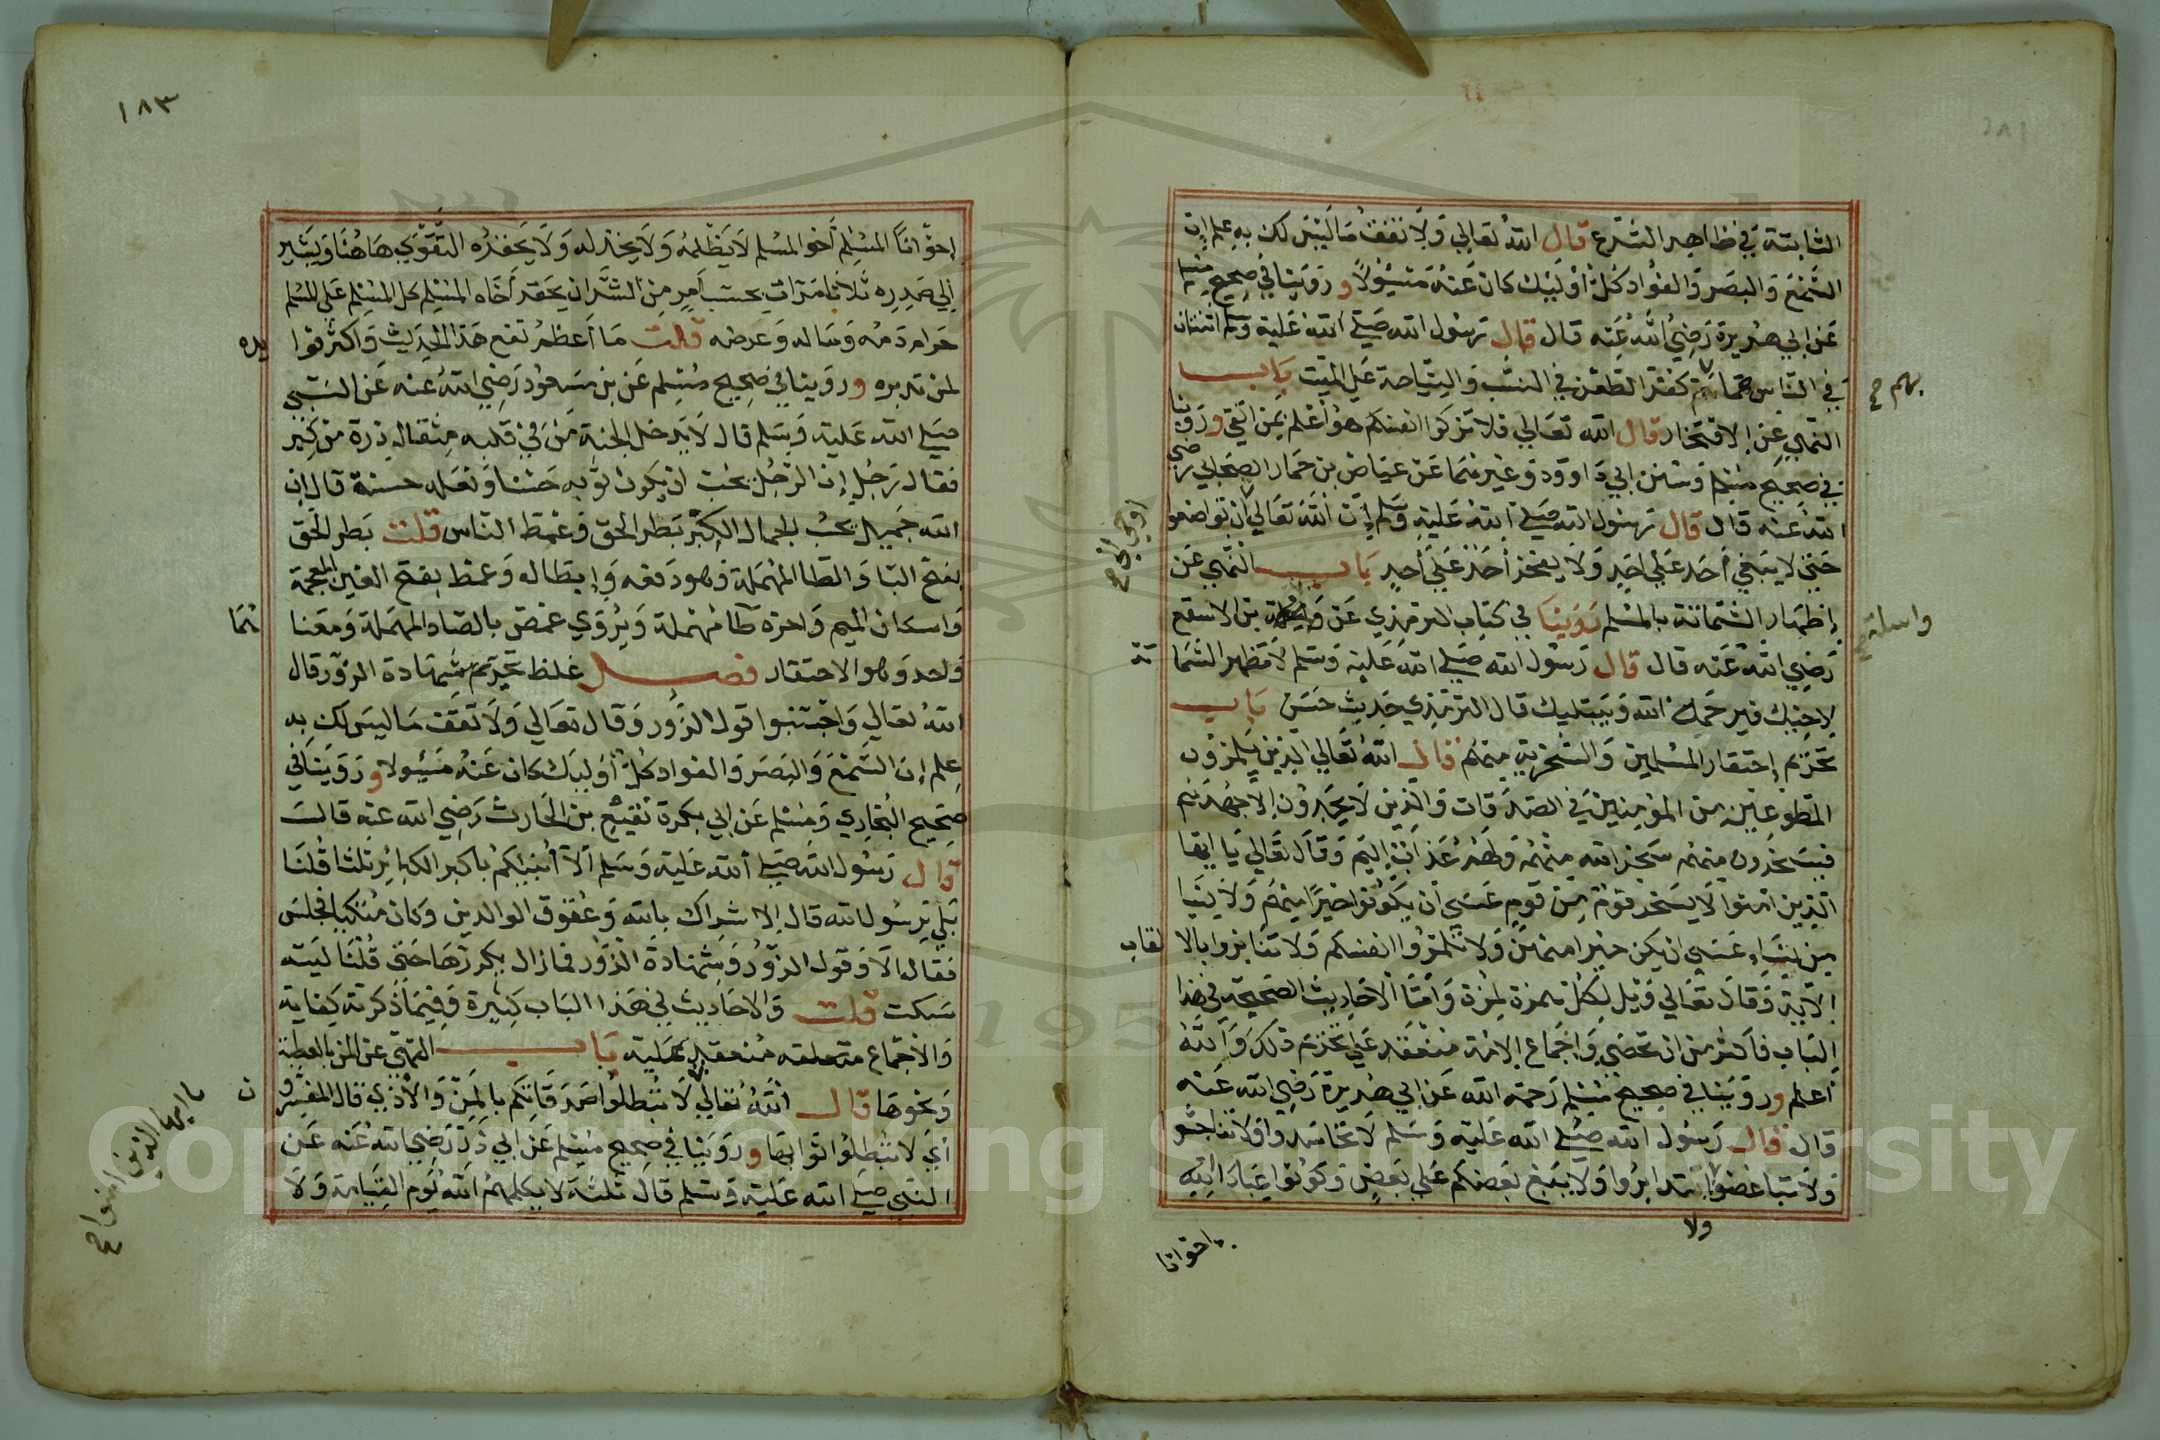 الثابتة في ظاهر الشرع قال الله تعالى ولا تقف ما ليس لك به علم إن
السمع والبصر والفؤاد كل أولئك كان عنه مسئولا وروينا في صحيح مسلم
عن أبي هريرة رضي الله عنه قال قال رسول الله صلى الله عليه وسلم اثنتان
في الناس هما بهم كفر الطعن في النسب والنياحة على الميت باب
النهي عن الافتخار قال الله تعالى فلا تزكوا أنفسكم هو أعلم بمن اتقى وروينا
في صحيح مسلم وسنن أبي داوود وغيرهما عن عياض بن حمار الصحابي رضي
الله عنه قال قال رسول الله صلى الله عليه وسلم إن الله تعالى أن تواضعوا
حتى لا يبغي أحد على أحد ولا يفخر أحد على أحد باب النهي عن
إظهار الشماتة بالمسلم روينا في كتاب الترمذي عن بن الاسقع
رضي الله عنه قال قال رسول الله صلى الله عليه وسلم لا تظهر الشما
لاخيك فيرحمه الله ويبتليك قال الترمذي حديث حسن باب
تحريم إحتقار المسلمين والسخرية منهم قال الله تعالى الذين يلمزون
المطوعين من المؤمنين في الصدقات والذين لا يجدون إلا جهدهم
فيسخرون منهم سخر الله منهم ولهم عذاب اليم وقال تعالى يا ايها
الذين امنوا لا يسخر قوم من قوم عسى أن يكونوا خيرا منهم ولا نسا
من نساء عسى ان يكن خيرا منهن ولا تلمزوا انفسكم ولا تنابزوا بالا لقاب
الآية وقال تعالى ويل لكل همزة لمزة وأما الاحاديث الصحيحة في هذا
الباب فأكثر من ان تحصى وإجماع الامة منعقد على تحريم ذلك والله
أعلم وروينا في صحيح مسلم رحمه الله عن ابي هريرة رضي الله عنه
قال قال رسول الله صلى الله عليه وسلم لا تحاسدوا ولا تناجشوا
ولا تباغضوا تدابروا ولا يبغ بعضكم على بعض وكونوا عباد الله
ولا
اخوانا
بهم ح
اوحى الي ح
واسلة
تة
١٨٣
إخوانا المسلم أخو المسلم لا يظلمه ولا يخذله ولا يحقره التقوى هاهنا ويشير
إلى صدره ثلاث مرات بحسب امرء من الشر ان يحقر أخاه المسلم كل المسلم على المسلم
حرام دمه وماله وعرضه قلت ما أعظم نفع هذا الحديث وأكثر فوا يده
لمن تدبره وروينا في صحيح مسلم عن بن مسعود رضي الله عنه عن النبي
صلى الله عليه وسلم قال لا يدخل الجنة من في قلبه مثقال ذرة من كبر
فقال رجل إن الرجل يحب ان يكون ثوبه حسنا ونعله حسنة قال إن
الله جميل يحب الجمال الكبر بطر الحق وغمط الناس قلت بطر الحق
بفتح البا والطا المهملة وهو دفعه وإبطاله وغمط بفتح الغين المعجمة
واسكان الميم واخره طا مهملة ويروى غمص بالصاد المهملة ومعنا هما
واحد وهو الاحتقار فصل غلظ تحريم شهادة الزور قال
الله تعالى واجتنبوا قول الزور وقال تعالى ولا تقف ما ليس لك به
علم إن السمع والبصر والفواد كل أولئك كان عنه مسئولا وروينا في
صحيح البخاري ومسلم عن ابي بكرة نفيع بن الحارث رضي الله عنه قالت
قال رسول الله صلى الله عليه وسلم ألا أنبئكم باكبر الكبائر ثلثا قلنا
بلى يرسول الله قال الاشراك بالله وعقوق الوالدين وكان متكيا فجلس
فقال الا وقول الزور وشهادة الزور فما زال يكررها حتى قلنا ليته
سكت قلت والاحاديث في هذا الباب كثيرة وفيما ذكرته كفاية
والاجماع منعقد عليه باب النهي عن المن بالعطية
ونحوها قال الله تعالى لا تبطلوا صدقاتكم بالمن والأذى قال المفسرو ن
أي لا تبطلوا ثوابها وروينا في صحيح مسلم عن ابي ذر رضي الله عنه عن
النبي صلى الله عليه وسلم قال ثلثة لا يكلمهم الله يوم القيامة ولا
يا ايها الذين امنوا ح
Copyright King Saud University
1957